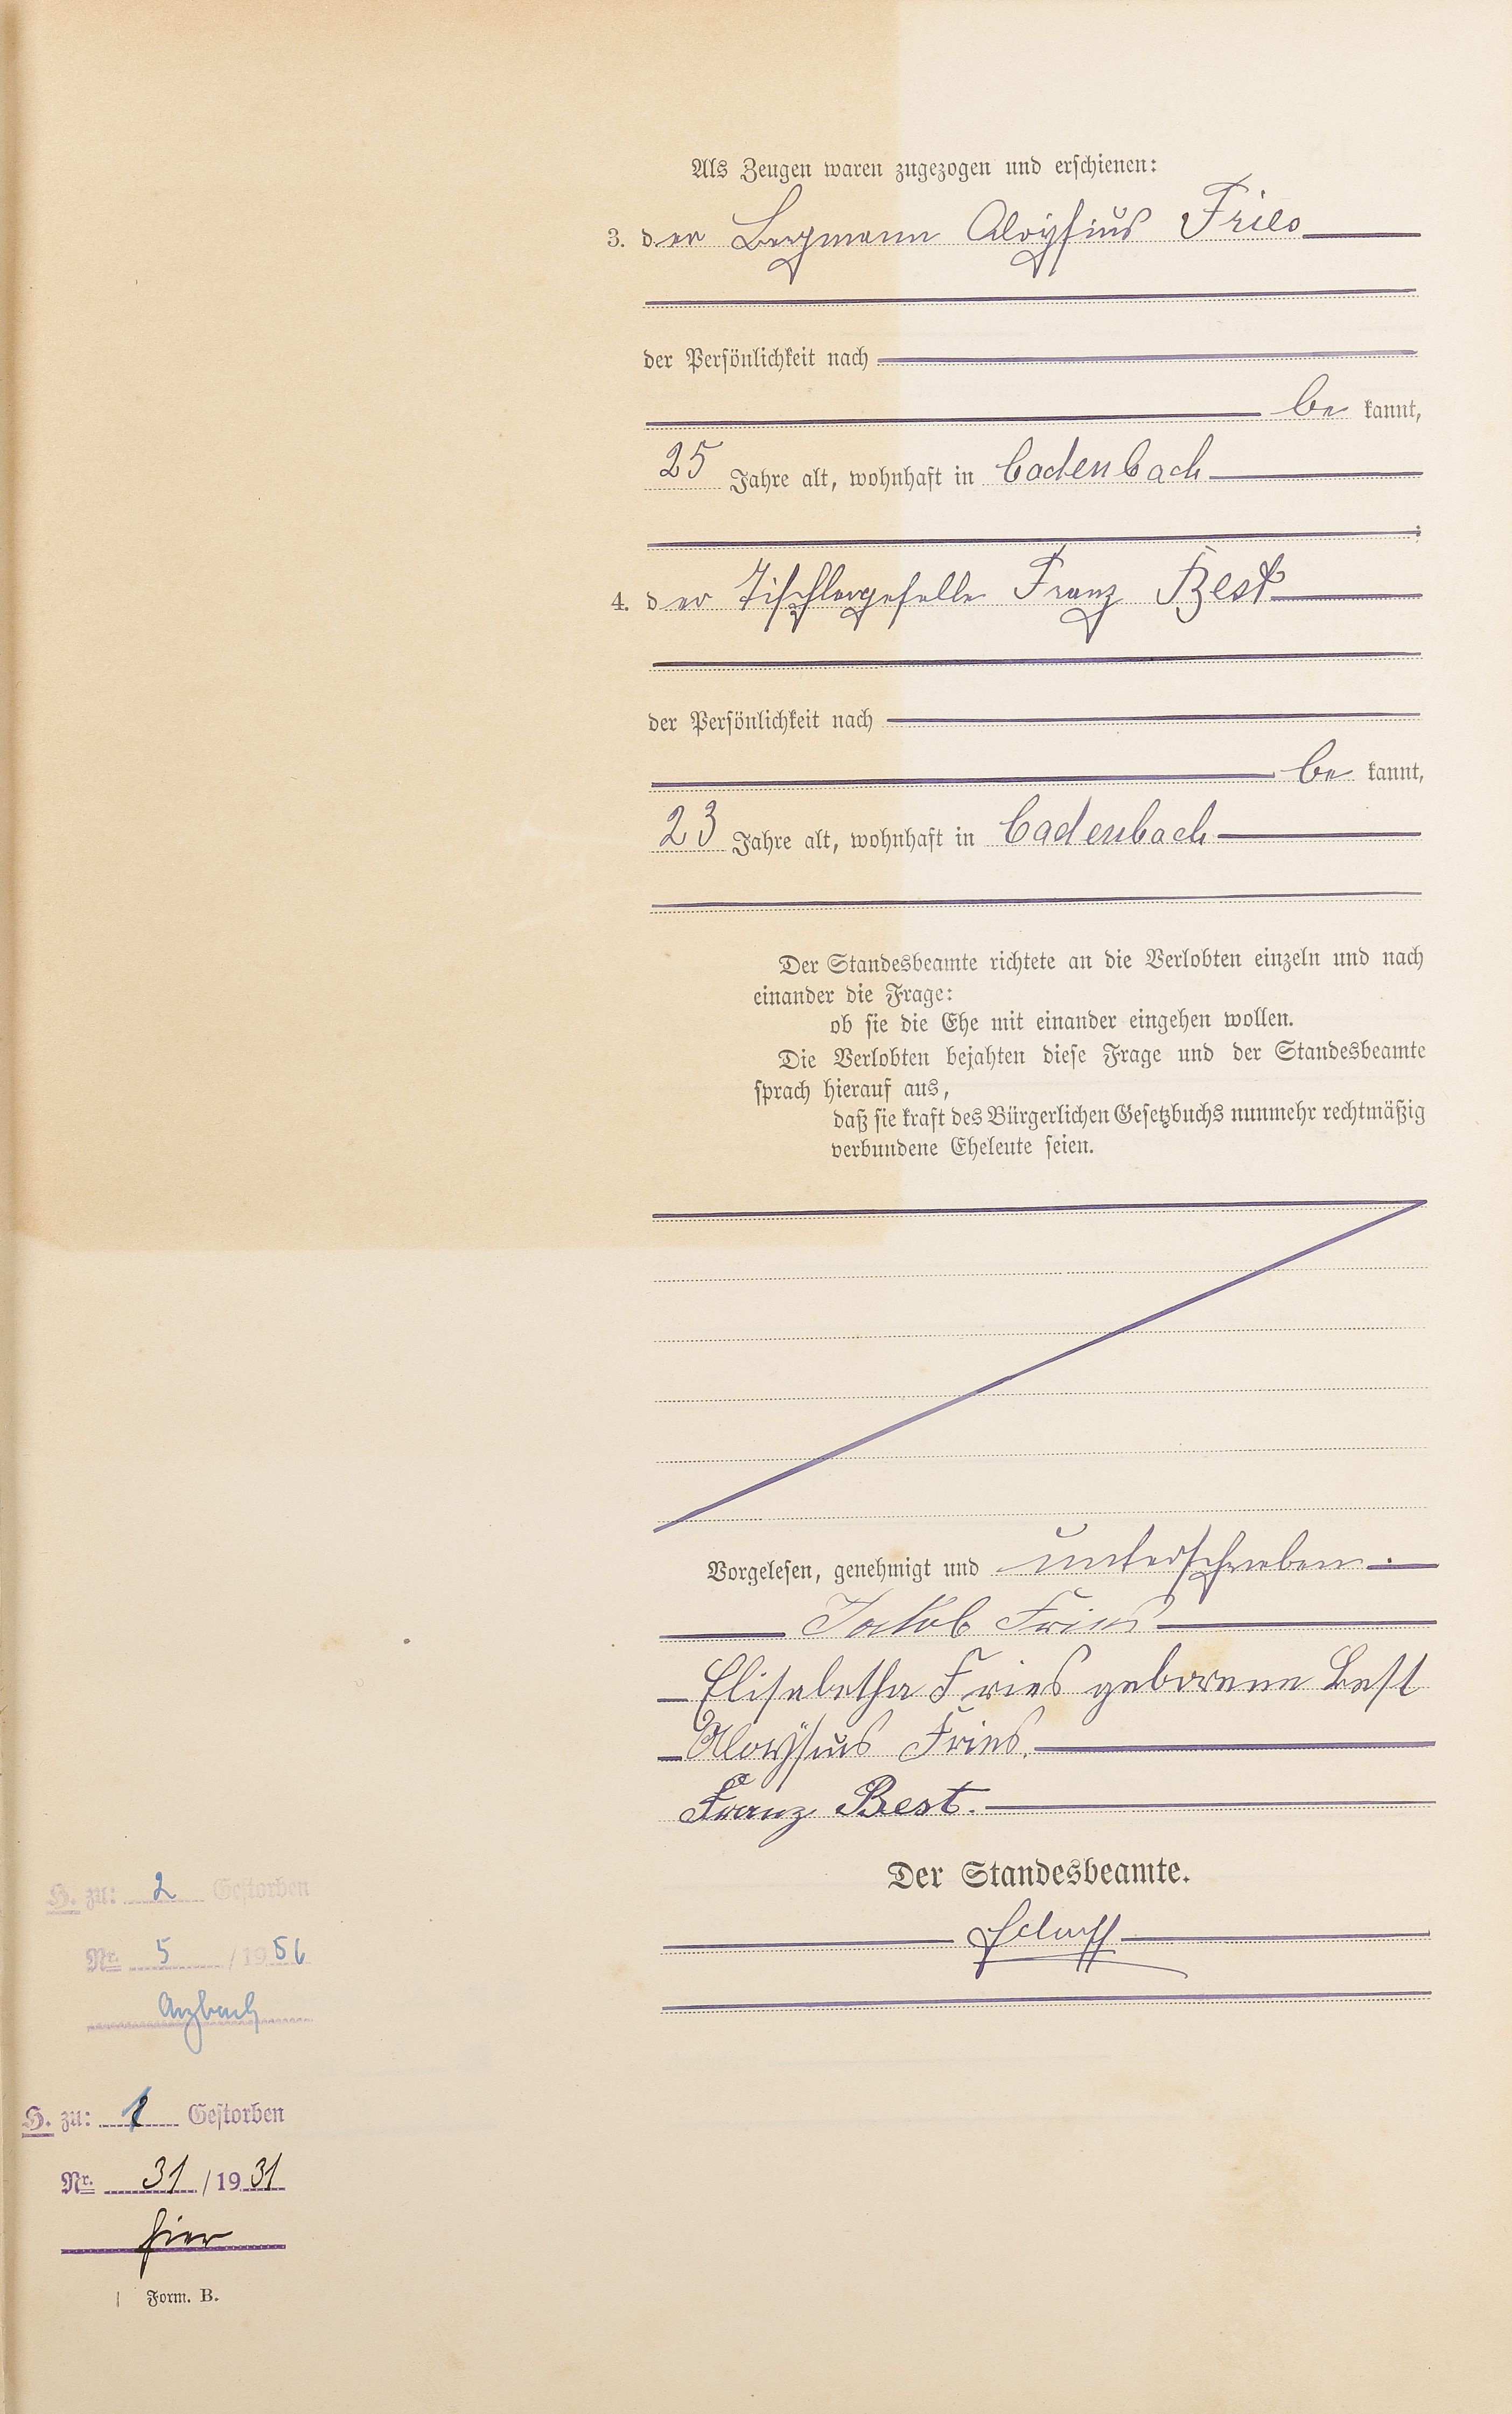 Als Zeugen waren zugezogen und erschienen:
3. der Bergmann Aloysius Fries
der Persönlichkeit nach
be kannt,
25 Jahre alt, wohnhaft in Cadenbach
4. der Tischlergeselle Franz Best
der Persönlichkeit nach
be kannt,
23 Jahre alt, wohnhaft in Cadenbach
Der Standesbeamte richtete an die Verlobten einzeln und nach
einander die Frage:
ob sie die Ehe mit einander eingehen wollen.
Die Verlobten bejahten diese Frage und der Standesbeamte
sprach hierauf aus,
daß sie kraft des Bürgerlichen Gesetzbuchs nunmehr rechtmäßig
verbundene Eheleute seien.
Vorgelesen, genehmigt und unterschrieben.
Jakob Fries
Elisabetha Fries geborene Best
Aloysius Fries.
Franz Best.
Der Standesbeamte.
H. zu: 2 Gestorben
Nr. 5 / 1956
Arzbach
H. zu: 1 Gestorben
Nr. 31 / 1931
hier
Form. B.